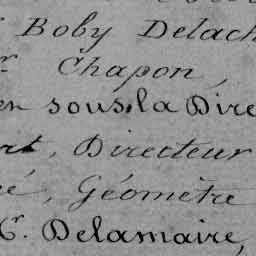 Boby Delach
r. Chapon,
en sous la Dire
rt, Directeur
é, Géomètre
r. Delamaire,